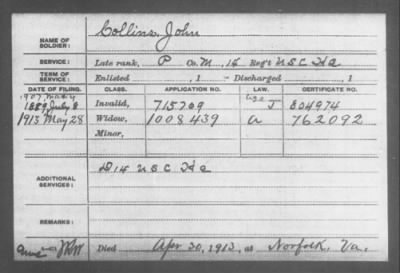 NAME OF SOLDIER: Collins, John
SERVICE: Late rank, P Co. M, 14 Reg't U S C H A
TERM OF SERVICE: Enlisted , 1 – Discharged , 1
DATE OF FILING. CLASS. APPLICATION NO. LAW. CERTIFICATE NO.
1907
July 8 Invalid, 715709 J 804974
1913 May 28 Widow, 1008439 a 762092
Minor,
ADDITIONAL SERVICES: D 14 U S C H A
REMARKS:
Died Apr 30, 1913, at Norfolk, Va.